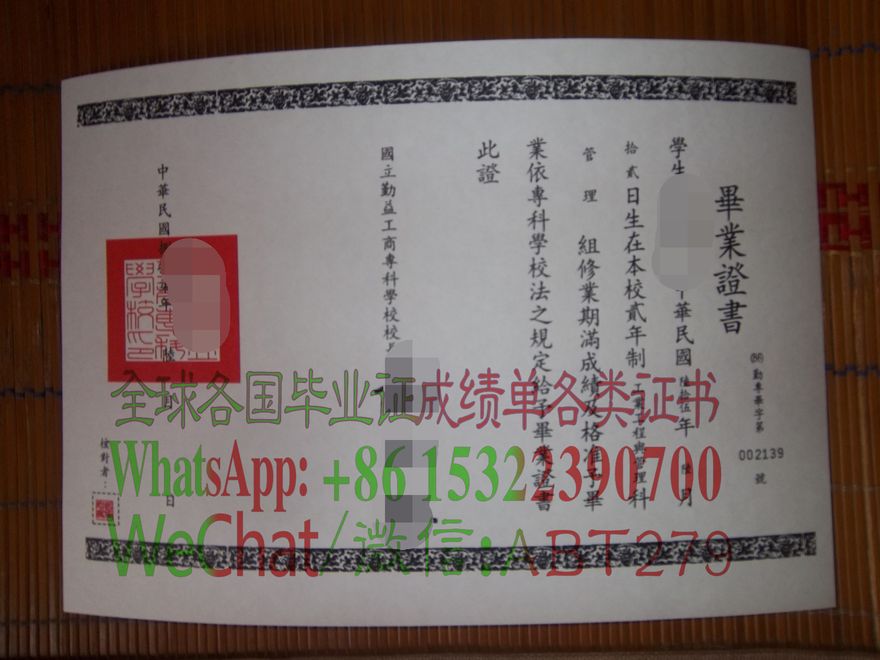 畢業證書
勤專畢字第
002139
號
學生 華民國陸拾伍年陸月
拾貳日生在本校貳年制工業工程與管理科
管理 組修業期滿成績及格准予畢
業依專科學校法之規定給予畢業證書
此證
國立勤益工商專科學校校
中華民國 年 陸 日
檢對者：
全球各国毕业证成绩单各类证书
WhatsApp: +86 15322390700
WeChat/微信:ABT279